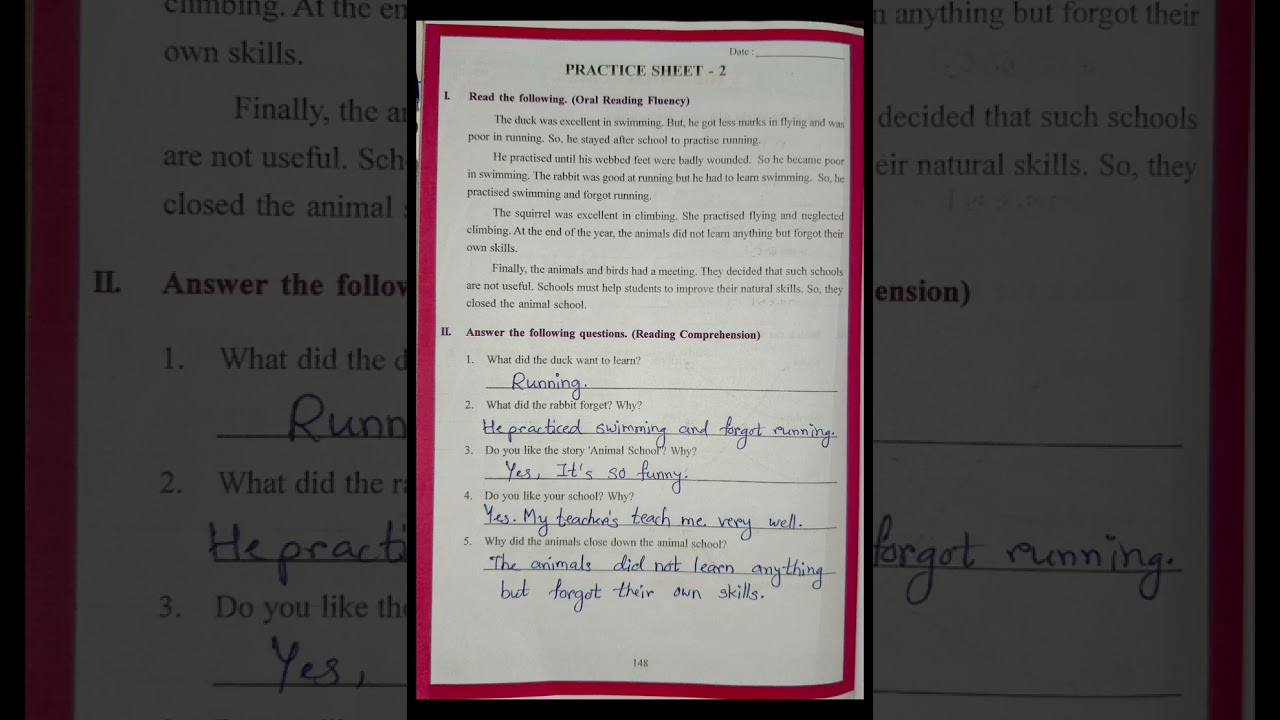 Date :
PRACTICE SHEET - 2
I. Read the following. (Oral Reading Fluency)
The duck was excellent in swimming. But, he got less marks in flying and was
poor in running. So, he stayed after school to practise running.
He practised until his webbed feet were badly wounded. So he became poor
in swimming. The rabbit was good at running but he had to learn swimming. So, he
practised swimming and forgot running.
The squirrel was excellent in climbing. She practised flying and neglected
climbing. At the end of the year, the animals did not learn anything but forgot their
own skills.
Finally, the animals and birds had a meeting. They decided that such schools
are not useful. Schools must help students to improve their natural skills. So, they
closed the animal school.
II. Answer the following questions. (Reading Comprehension)
1. What did the duck want to learn?
Running.
2. What did the rabbit forget? Why?
He practiced swimming and forgot running.
3. Do you like the story 'Animal School'? Why?
Yes, It's so funny.
4. Do you like your school? Why?
Yes. My teacher's teach me very well.
5. Why did the animals close down the animal school?
The animals did not learn anything
but forgot their own skills.
148